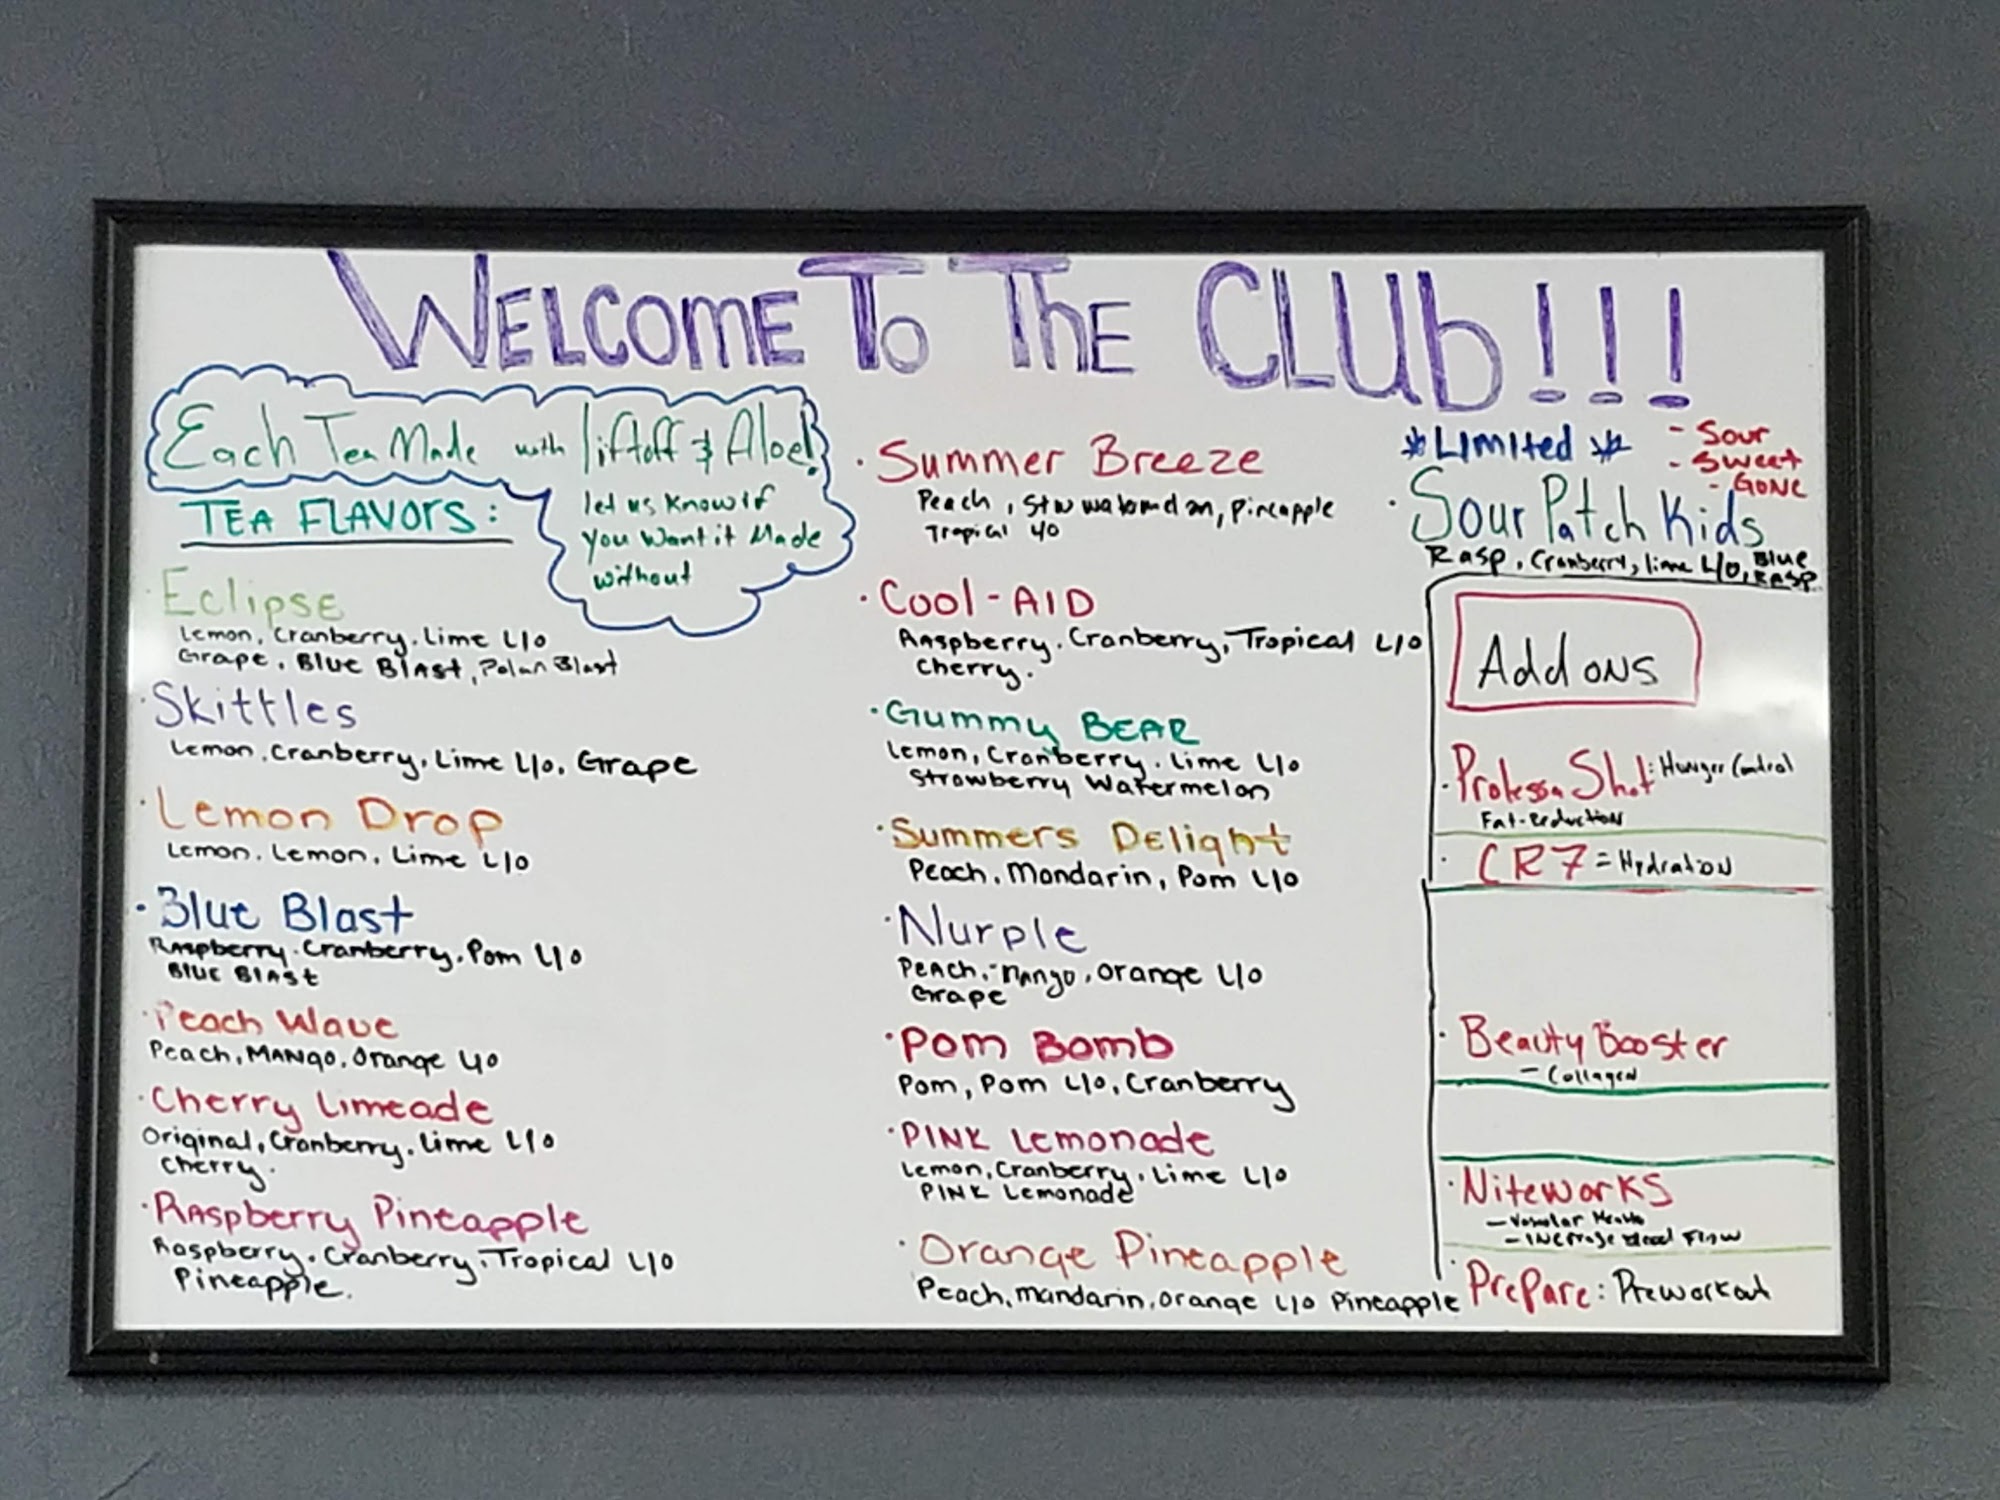 WELCOME TO THE CLUb!!!
Each Tea Made with liftoff & Aloe!
let us know if
you want it Made
without
TEA FLAVORS:
· Eclipse
Lemon, Cranberry, Lime L/O
Grape, BLUE BLAST, Polar Blast
· Skittles
Lemon, Cranberry, Lime L/O, Grape
· Lemon Drop
Lemon, Lemon, Lime L/O
· Blue Blast
Raspberry, Cranberry, Pom L/O
BLUE BLAST
· Peach Wave
Peach, MANGO, Orange L/O
· Cherry Limeade
Original, Cranberry, Lime L/O
Cherry.
· Raspberry Pineapple
Raspberry, Cranberry, Tropical L/O
Pineapple.
· Summer Breeze
Peach, Stw watermelon, Pineapple
Tropical L/O
· Cool-AID
Raspberry, Cranberry, Tropical L/O
Cherry.
· Gummy BEAR
Lemon, Cranberry, Lime L/O
Strawberry Watermelon
· Summers Delight
Peach, Mandarin, Pom L/O
· Nurple
PEACH, Mango, Orange L/O
Grape
· Pom Bomb
Pom, Pom L/O, Cranberry
· PINK Lemonade
Lemon, Cranberry, Lime L/O
PINK Lemonade
· Orange Pineapple
Peach, mandarin, Orange L/O Pineapple
*LIMITED*
- Sour
- Sweet
- GONE
· Sour Patch Kids
Rasp, Cranberry, lime L/O, Blue
RASP
Add ONS
· Prolessa Shot: Hunger Control
Fat-Reduction
· CR7 = Hydration
· Beauty Booster
- Collagen
· NiteworKS
- Vascular Health
- INCrease Blood Flow
· PrePare: Preworkout